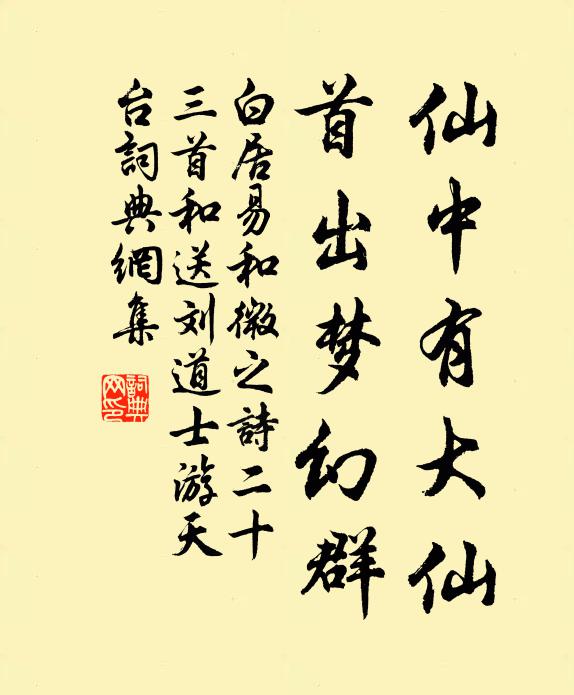 仙中有大仙
首出梦幻群
白居易和微之詩二十
三首和送刘道士游天
台詞典網集
詞典
网印